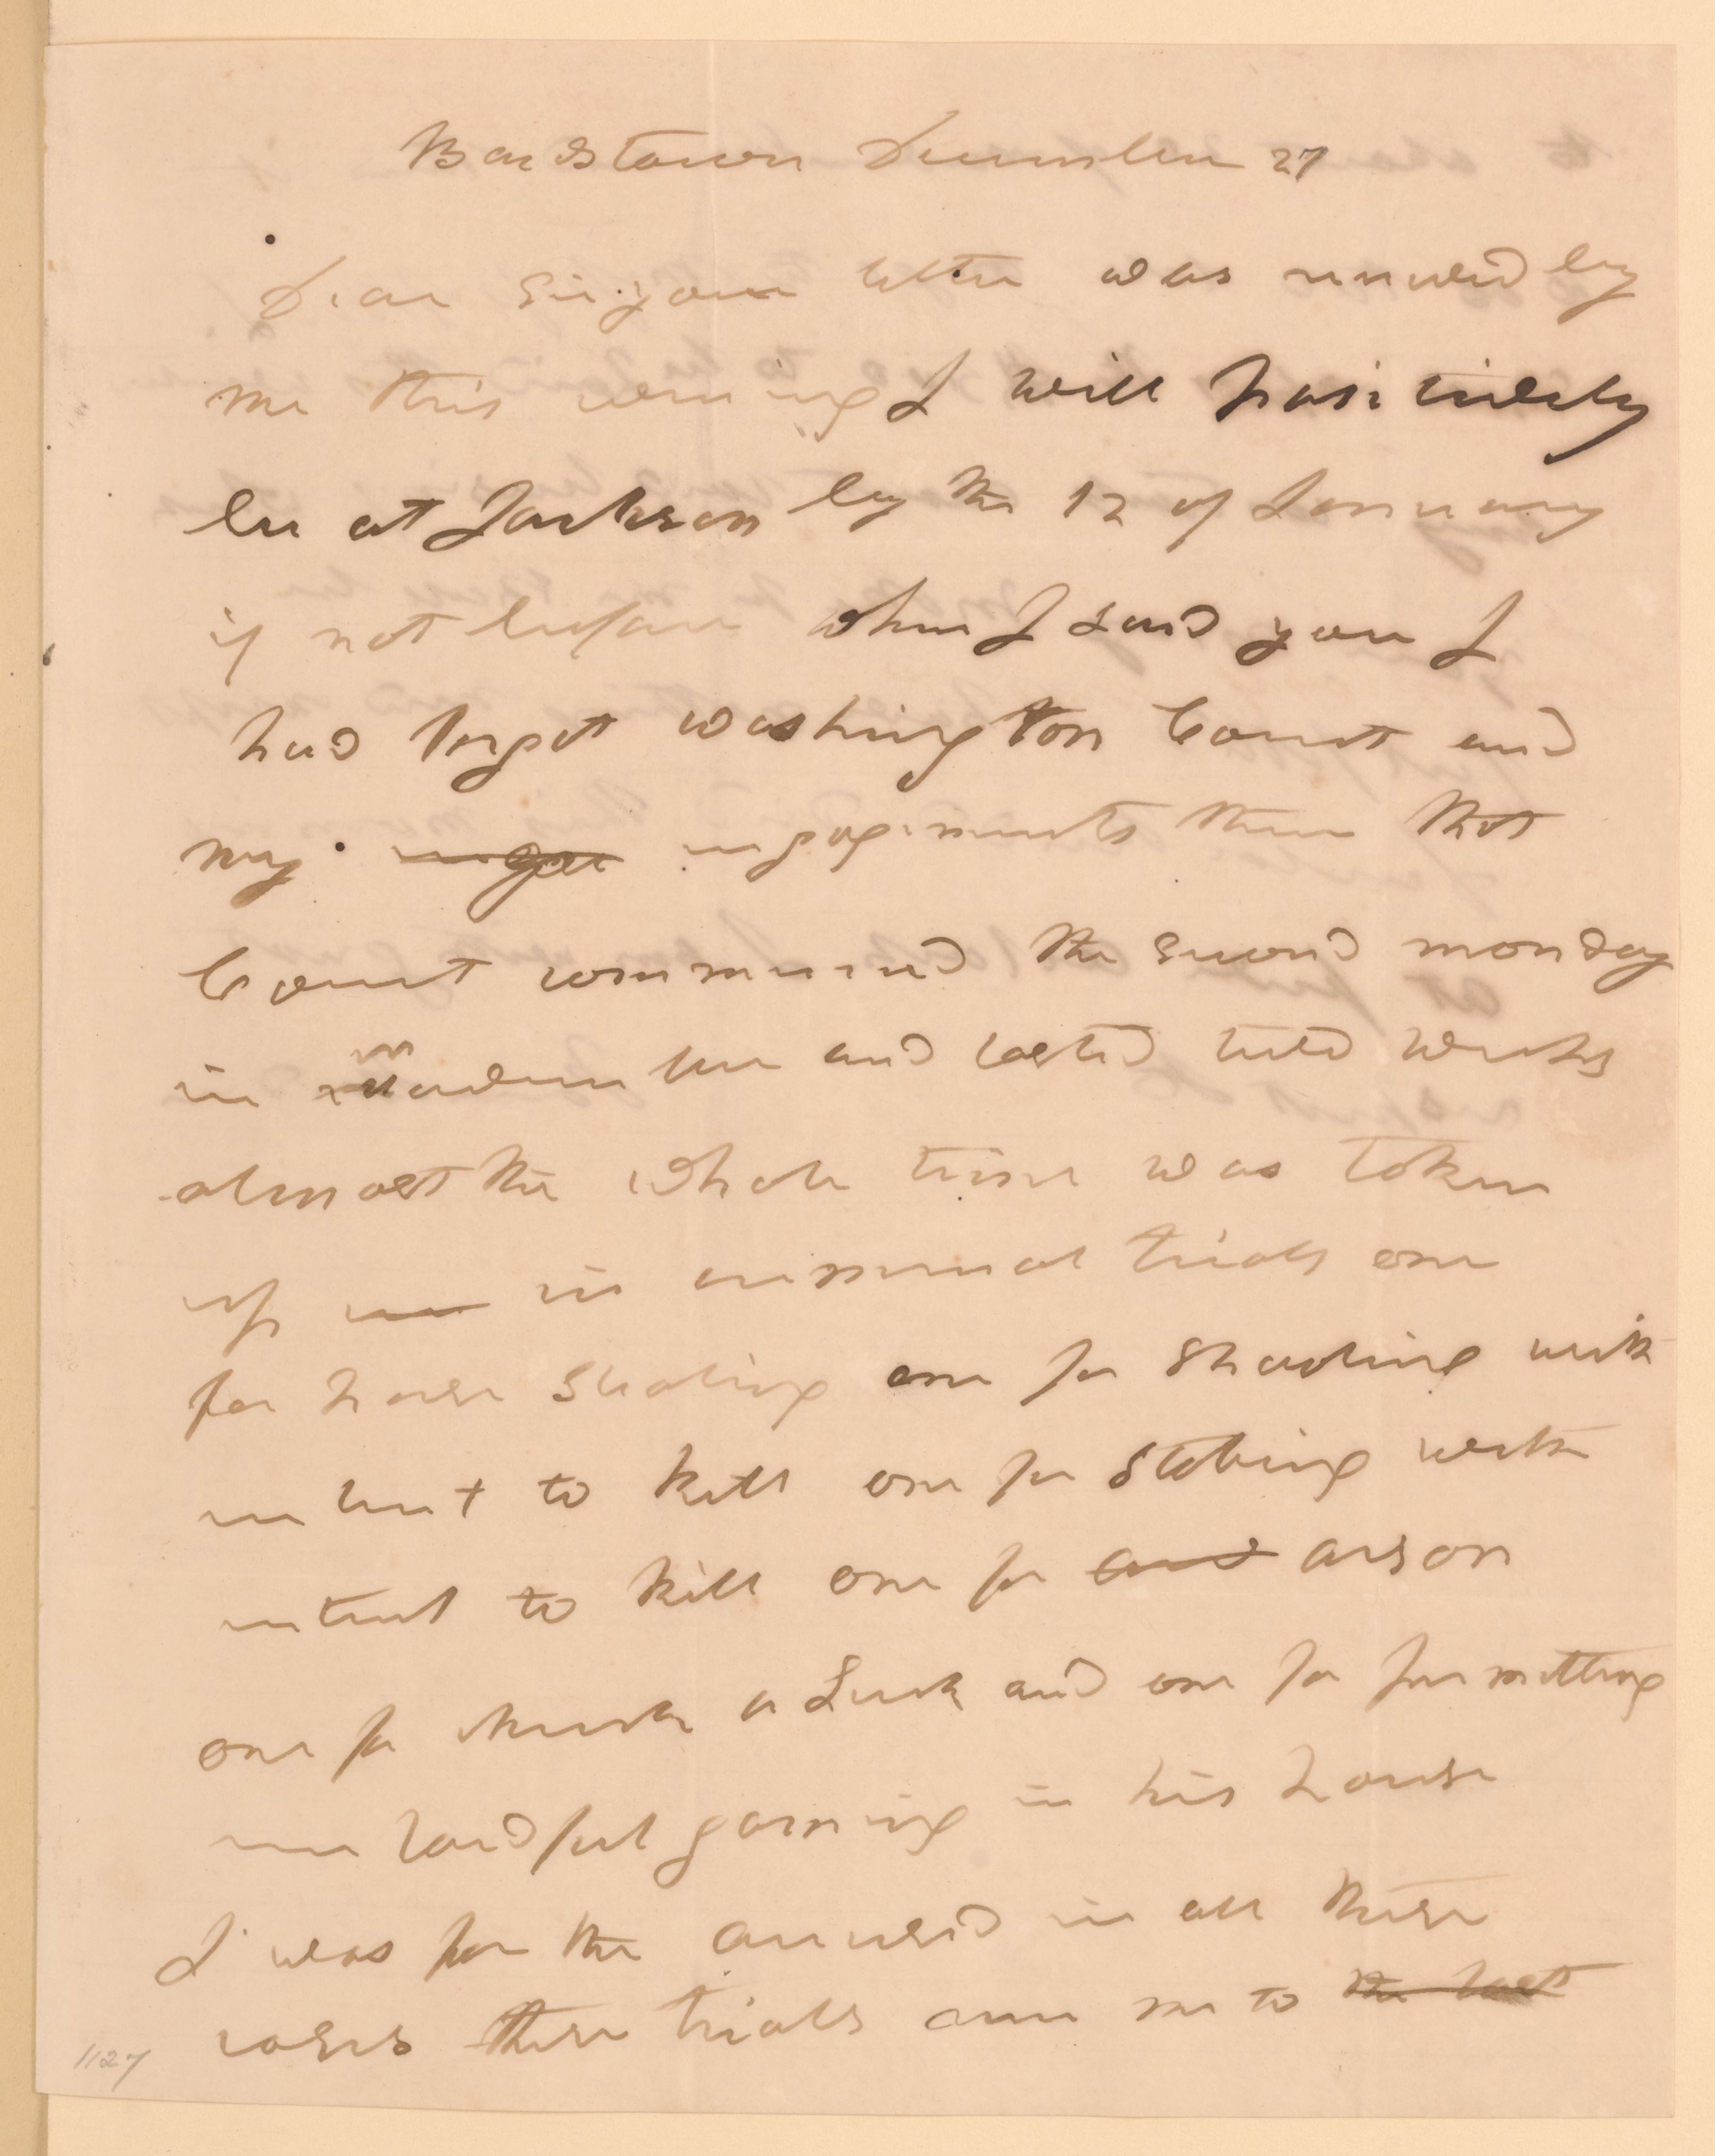 Bardstown December 27
Dear Sir your letter was received by
me this evening I will positively
be at Jackson by the 12 of January
if not before when I said you I
had forgot washington Court and
my ingagements there that
Court commenced the second monday
in november and lasted two weeks
almost the whole time was taken
up in criminal trials one
for horse stealing one for shooting with
intent to kill one for stabing with
intent to kill one for arson
one for and one for permitting
unlawful gaming in his house
I was for the accused in all these
cases these trials me to the last
1127